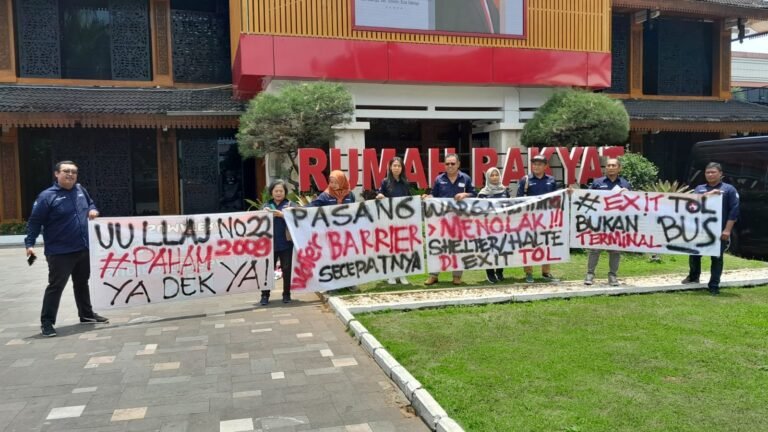 RUMAH RAKYAT
UU LLAJ NO 22
2009
#PAHAM
YA DEK YA!
PASANG
Water BARRIER
SECEPATNYA
MENOLAK!!!
SHELTER/HALTE
DI EXIT TOL
# EXIT TOL
BUKAN
TERMINAL
BUS